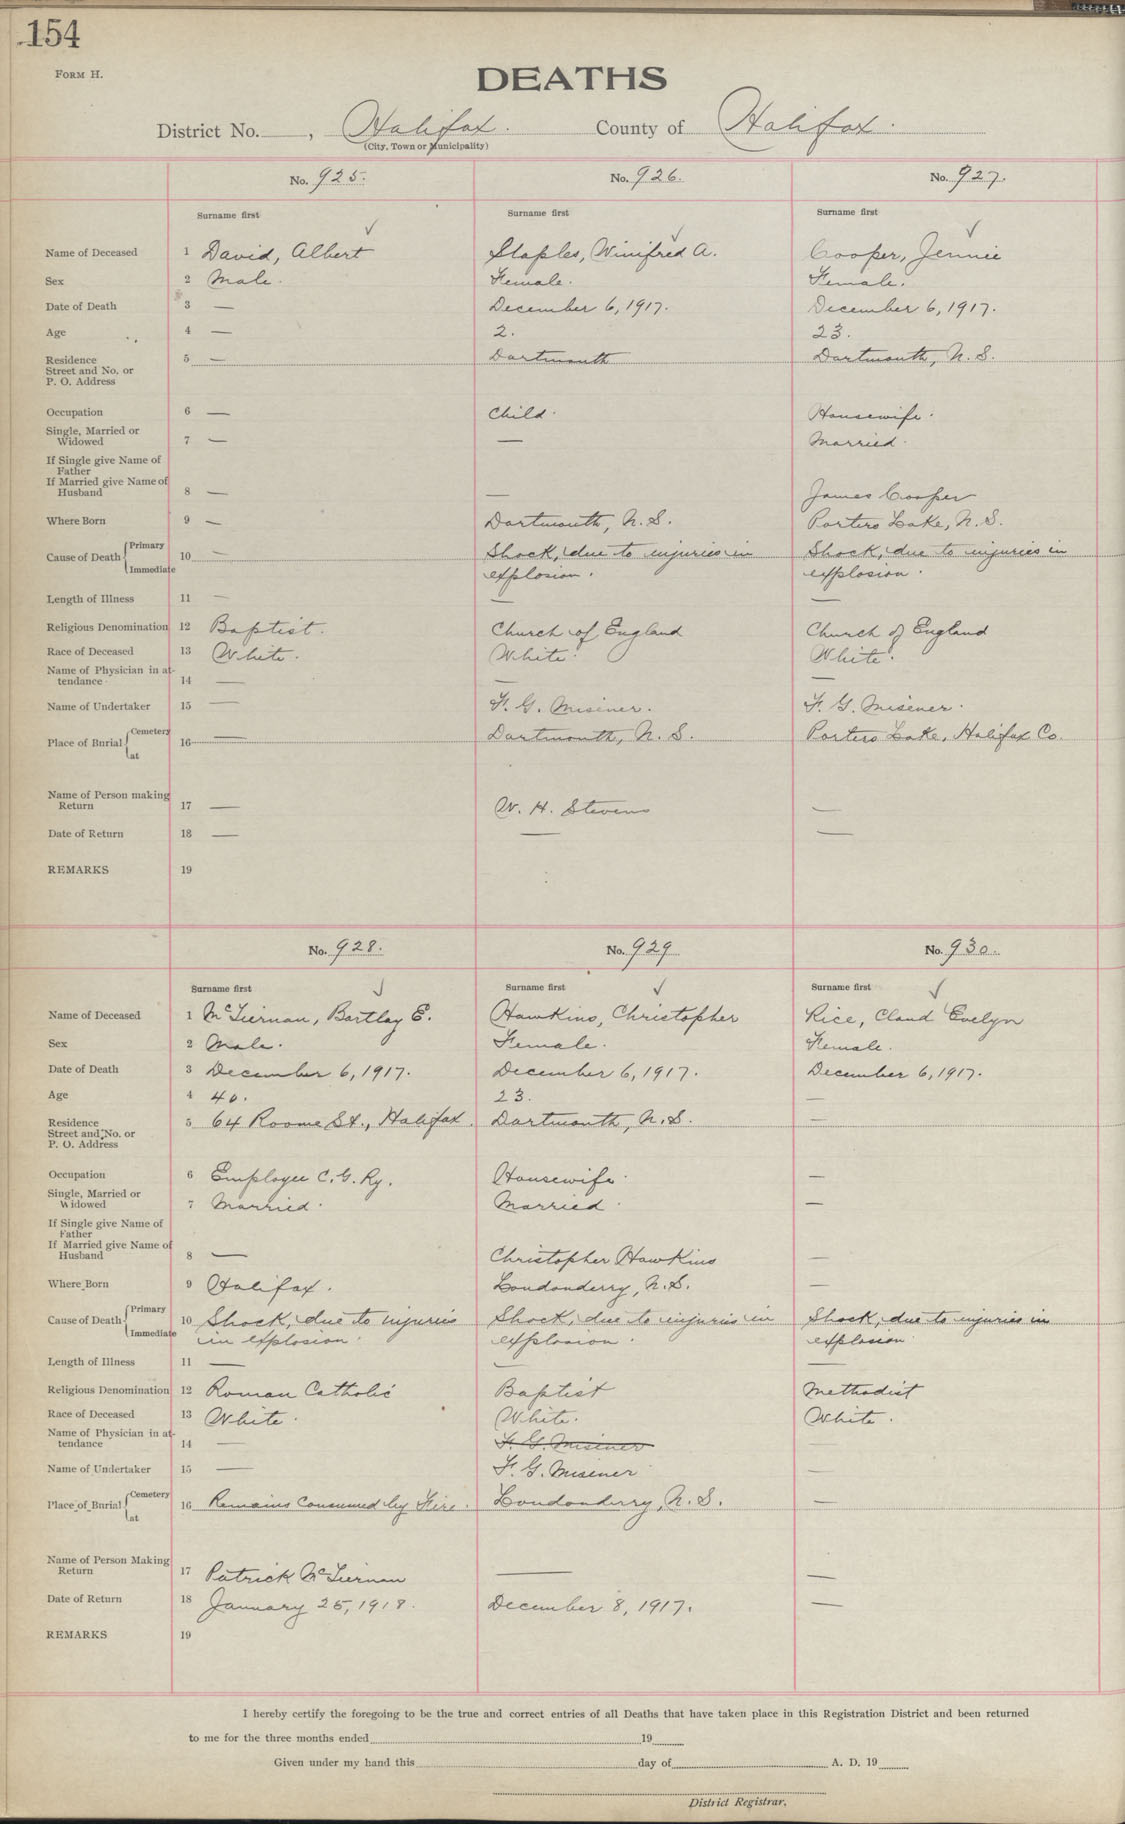 154
FORM H.
DEATHS
District No. , Halifax. County of Halifax.
(City, Town or Municipality)
No. 925. No. 926. No. 927.
Surname first Surname first Surname first
Name of Deceased 1 David, Albert Staples, Winifred A. Cooper, Jennie
Sex 2 Male. Female. Female.
Date of Death 3 — December 6, 1917. December 6, 1917.
Age 4 — 2. 23.
Residence 5 — Dartmouth Dartmouth, N. S.
Street and No. or
P. O. Address
Occupation 6 — Child. Housewife.
Single, Married or
Widowed 7 — — Married.
If Single give Name of
Father
If Married give Name of
Husband 8 — — James Cooper
Where Born 9 — Dartmouth, N. S. Porters Lake, N. S.
Cause of Death { Primary Immediate 10 — Shock, due to injuries in Shock, due to injuries in
explosion. explosion.
Length of Illness 11 — — —
Religious Denomination 12 Baptist. Church of England Church of England
Race of Deceased 13 White. White. White.
Name of Physician in at-
tendance 14 — — —
Name of Undertaker 15 — F. G. Misener. F. G. Misener.
Place of Burial { Cemetery at 16 — Dartmouth, N. S. Porters Lake, Halifax Co.
Name of Person making
Return 17 — W. H. Stevens —
Date of Return 18 — — —
REMARKS 19
No. 928. No. 929 No. 930.
Surname first Surname first Surname first
Name of Deceased 1 McTiernan, Bartlay E. Hawkins, Christopher Rice, Claud Evelyn
Sex 2 Male. Female. Female.
Date of Death 3 December 6, 1917. December 6, 1917. December 6, 1917.
Age 4 40. 23. —
Residence 5 64 Roome St., Halifax. Dartmouth, N. S. —
Street and No. or
P. O. Address
Occupation 6 Employee C. G. Ry. Housewife. —
Single, Married or
Widowed 7 Married. Married. —
If Single give Name of
Father
If Married give Name of
Husband 8 — Christopher Hawkins —
Where Born 9 Halifax. Londonderry, N. S. —
Cause of Death { Primary Immediate 10 Shock, due to injuries Shock, due to injuries in Shock, due to injuries in
in explosion. explosion. explosion.
Length of Illness 11 — — —
Religious Denomination 12 Roman Catholic Baptist Methodist
Race of Deceased 13 White. White. White.
Name of Physician in at-
tendance 14 — F. G. Misener —
Name of Undertaker 15 — F. G. Misener —
Place of Burial { Cemetery at 16 Remains Consumed by Fire. Londonderry, N. S. —
Name of Person Making
Return 17 Patrick McTiernan — —
Date of Return 18 January 25, 1918. December 8, 1917. —
REMARKS 19
I hereby certify the foregoing to be the true and correct entries of all Deaths that have taken place in this Registration District and been returned
to me for the three months ended 19
Given under my hand this day of A. D. 19
District Registrar.